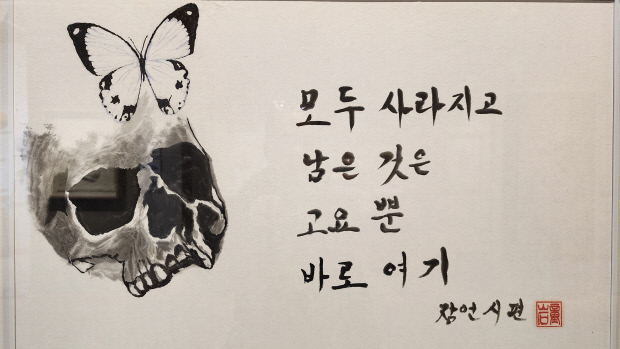 모두 사라지고
남은 것은
고요 뿐
바로 여기
잠언시편